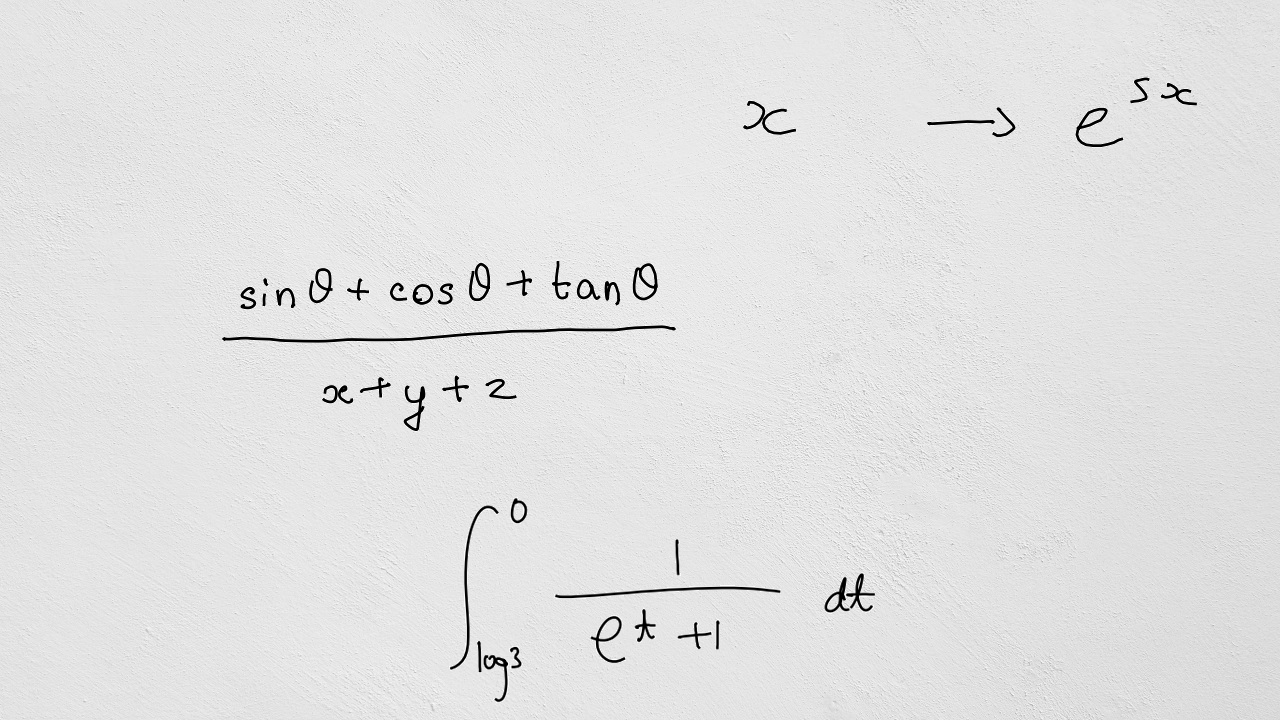 x → e^{5x}
\frac{sin θ + cos θ + tan θ}{x + y + z}
\int_{log 3}^{0} \frac{1}{e^t + 1} dt